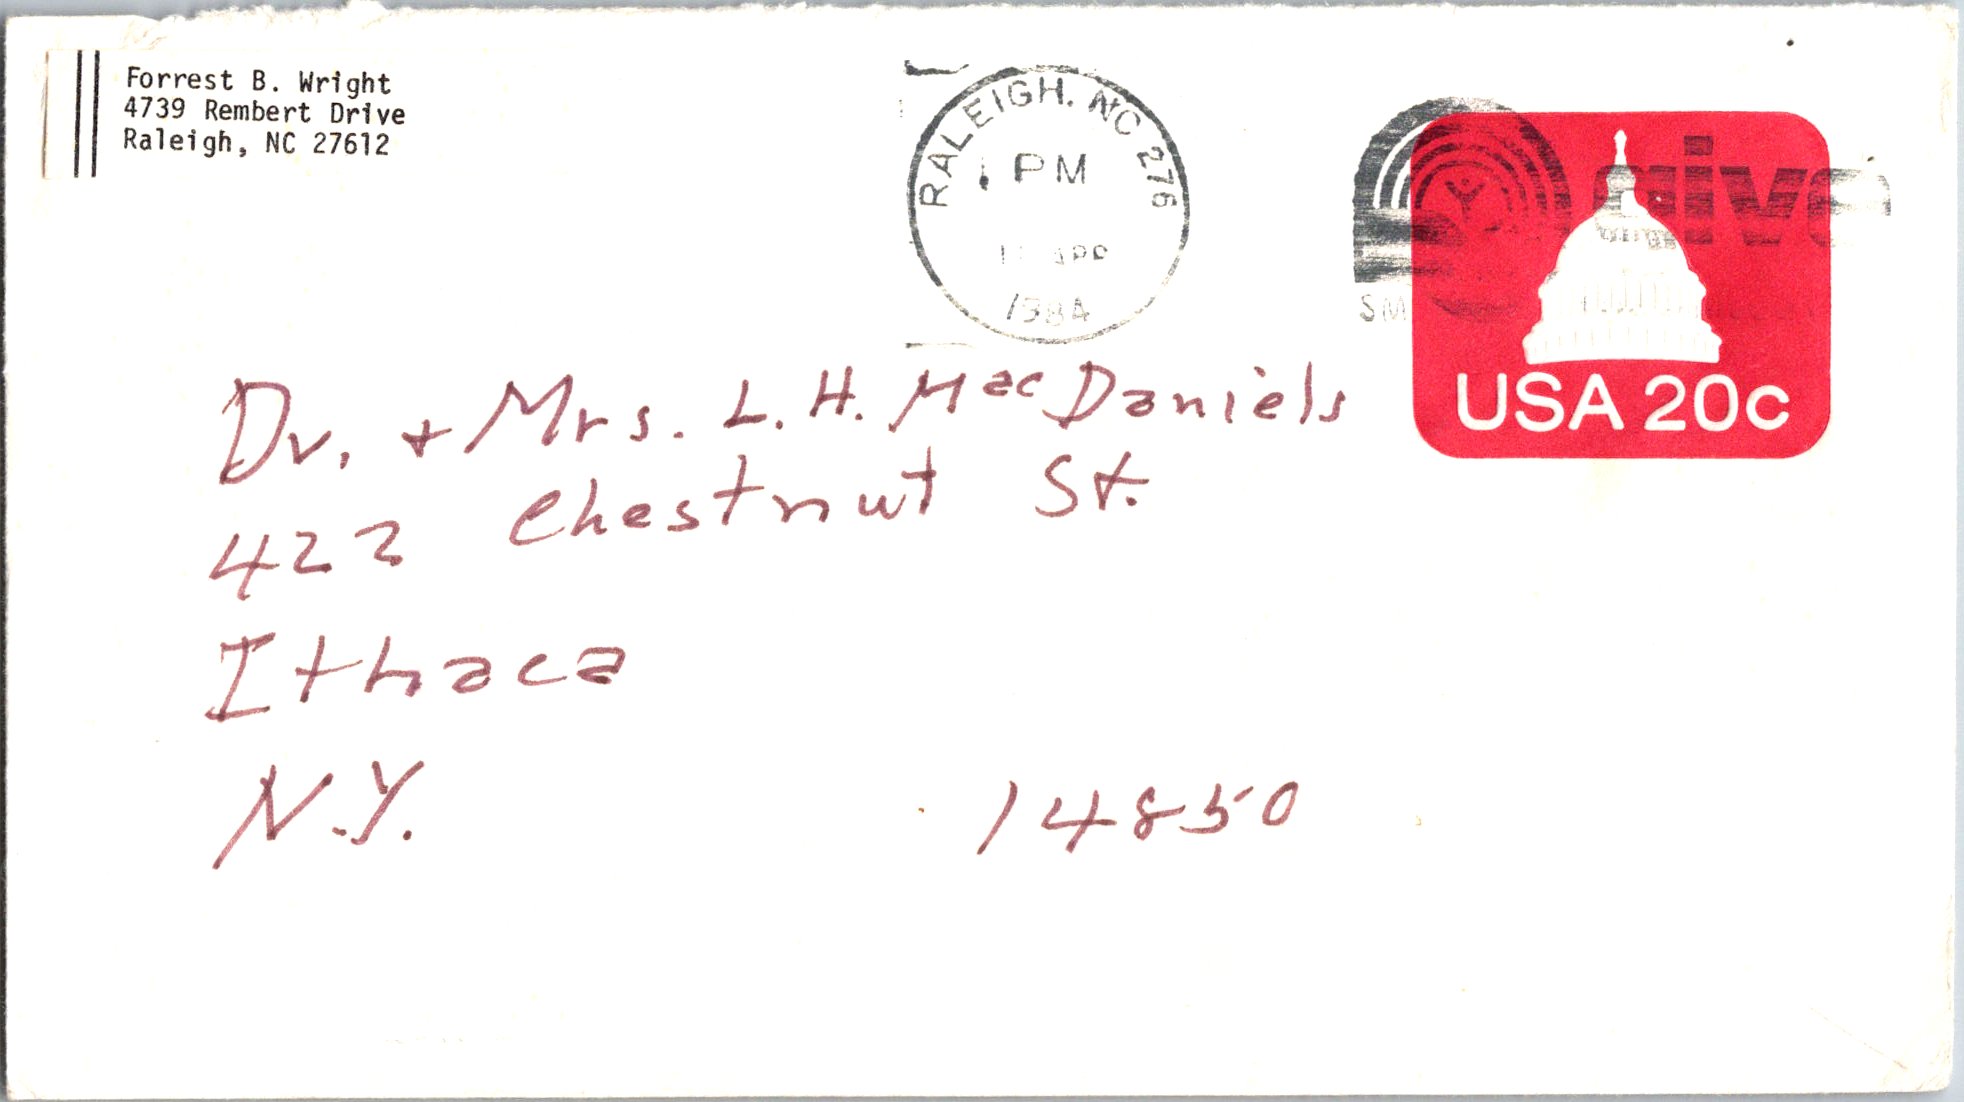 Forrest B. Wright
4739 Rembert Drive
Raleigh, NC 27612
RALEIGH. NC 276
PM
APR
1984
give
SM
USA 20c
Dr. + Mrs. L. H. MacDaniels
422 Chestnut St.
Ithaca
N.Y. 14850